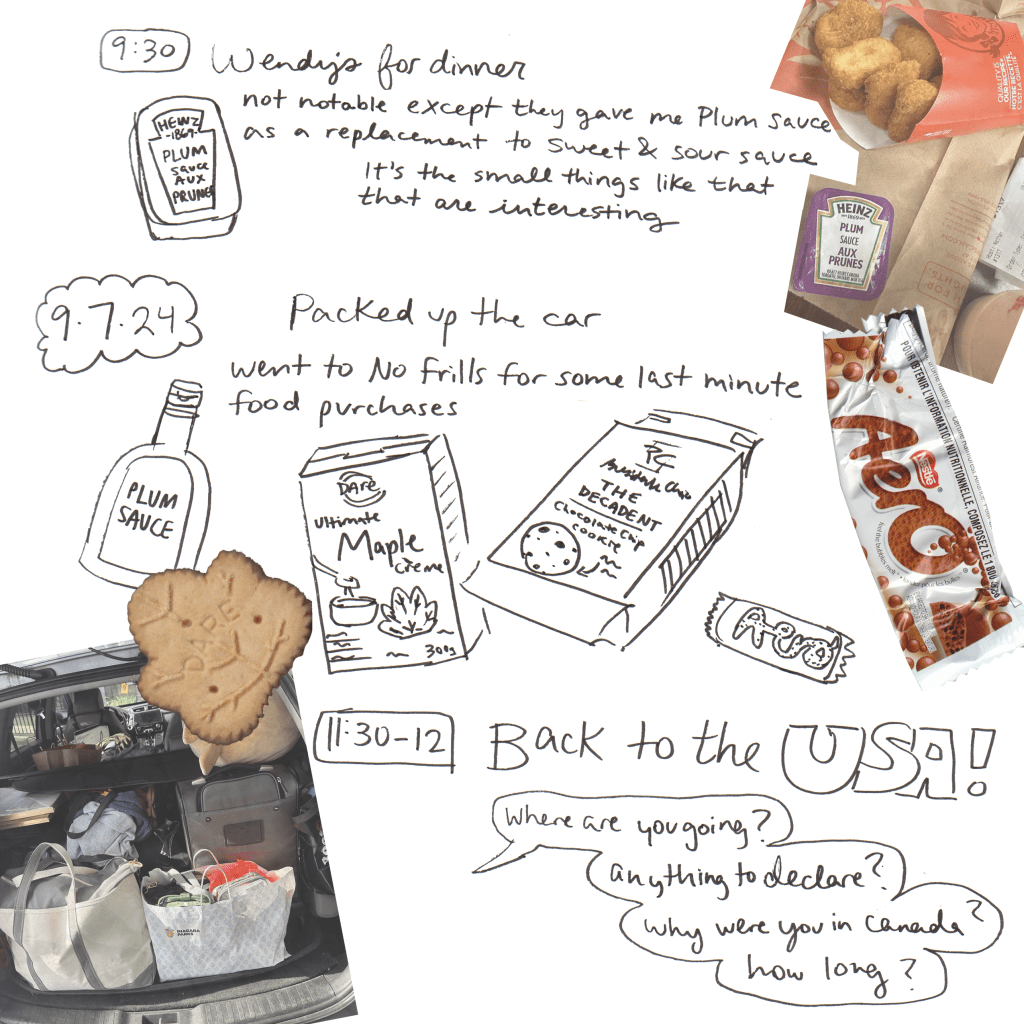 9:30
Wendy's for dinner
not notable except they gave me Plum Sauce
as a replacement to sweet & sour sauce
It's the small things like that
that are interesting
HEINZ
-1869-
PLUM
sauce
AUX
PRUNES
QUALITY IS
OUR RECIPE
NOTRE RECETTE,
C'EST LA QUALITÉ
HEINZ
1869
PLUM
SAUCE
AUX
PRUNES
9.7.24
Packed up the car
went to No Frills for some last minute
food purchases
PLUM
SAUCE
DARE
Ultimate
Maple
Crème
300g
PC
THE
DECADENT
Chocolate Chip
Cookie
Aero
POUR OBTENIR L'INFORMATION NUTRITIONNELLE, COMPOSEZ LE 1 800
Nestlé
Aero
DARE
NIAGARA
PARKS
11:30-12
Back to the USA!
Where are you going?
anything to declare?
why were you in Canada?
how long?